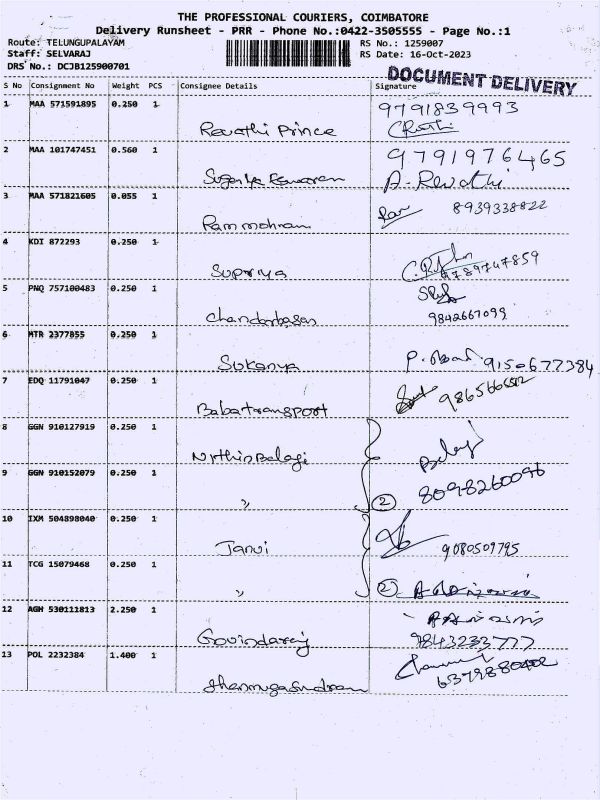 THE PROFESSIONAL COURIERS, COIMBATORE
Delivery Runsheet - PRR - Phone No.:0422-3505555 - Page No.:1
Route: TELUNGUPALAYAM RS No.: 1259007
Staff: SELVARAJ RS Date: 16-Oct-2023
DRS No.: DCJB125900701
DOCUMENT DELIVERY
S No Consignment No Weight PCS Consignee Details Signature
1 MAA 571591895 0.250 1 9791839993
Revathi Prince
2 MAA 101747451 0.560 1 9791976465
A. Revathi
3 MAA 571821605 0.055 1 8939338822
Rammohram
4 KDI 872293 0.250 1
Supriya 9789747859
5 PNQ 757100483 0.250 1
9842667099
6 MTR 2377855 0.250 1
Sukanya 9150677384
7 EDQ 11791047 0.250 1
Babartransport
8 GGN 910127919 0.250 1
NithinBalaji Balaji
9 GGN 910152079 0.250 1
" 2 8098260096
10 IXM 504898040 0.250 1
Janvi 9080509795
11 TCG 15079468 0.250 1
" 2
12 AGH 530111813 2.250 1
Govindaraj 9843233777
13 POL 2232384 1.400 1
6379880402